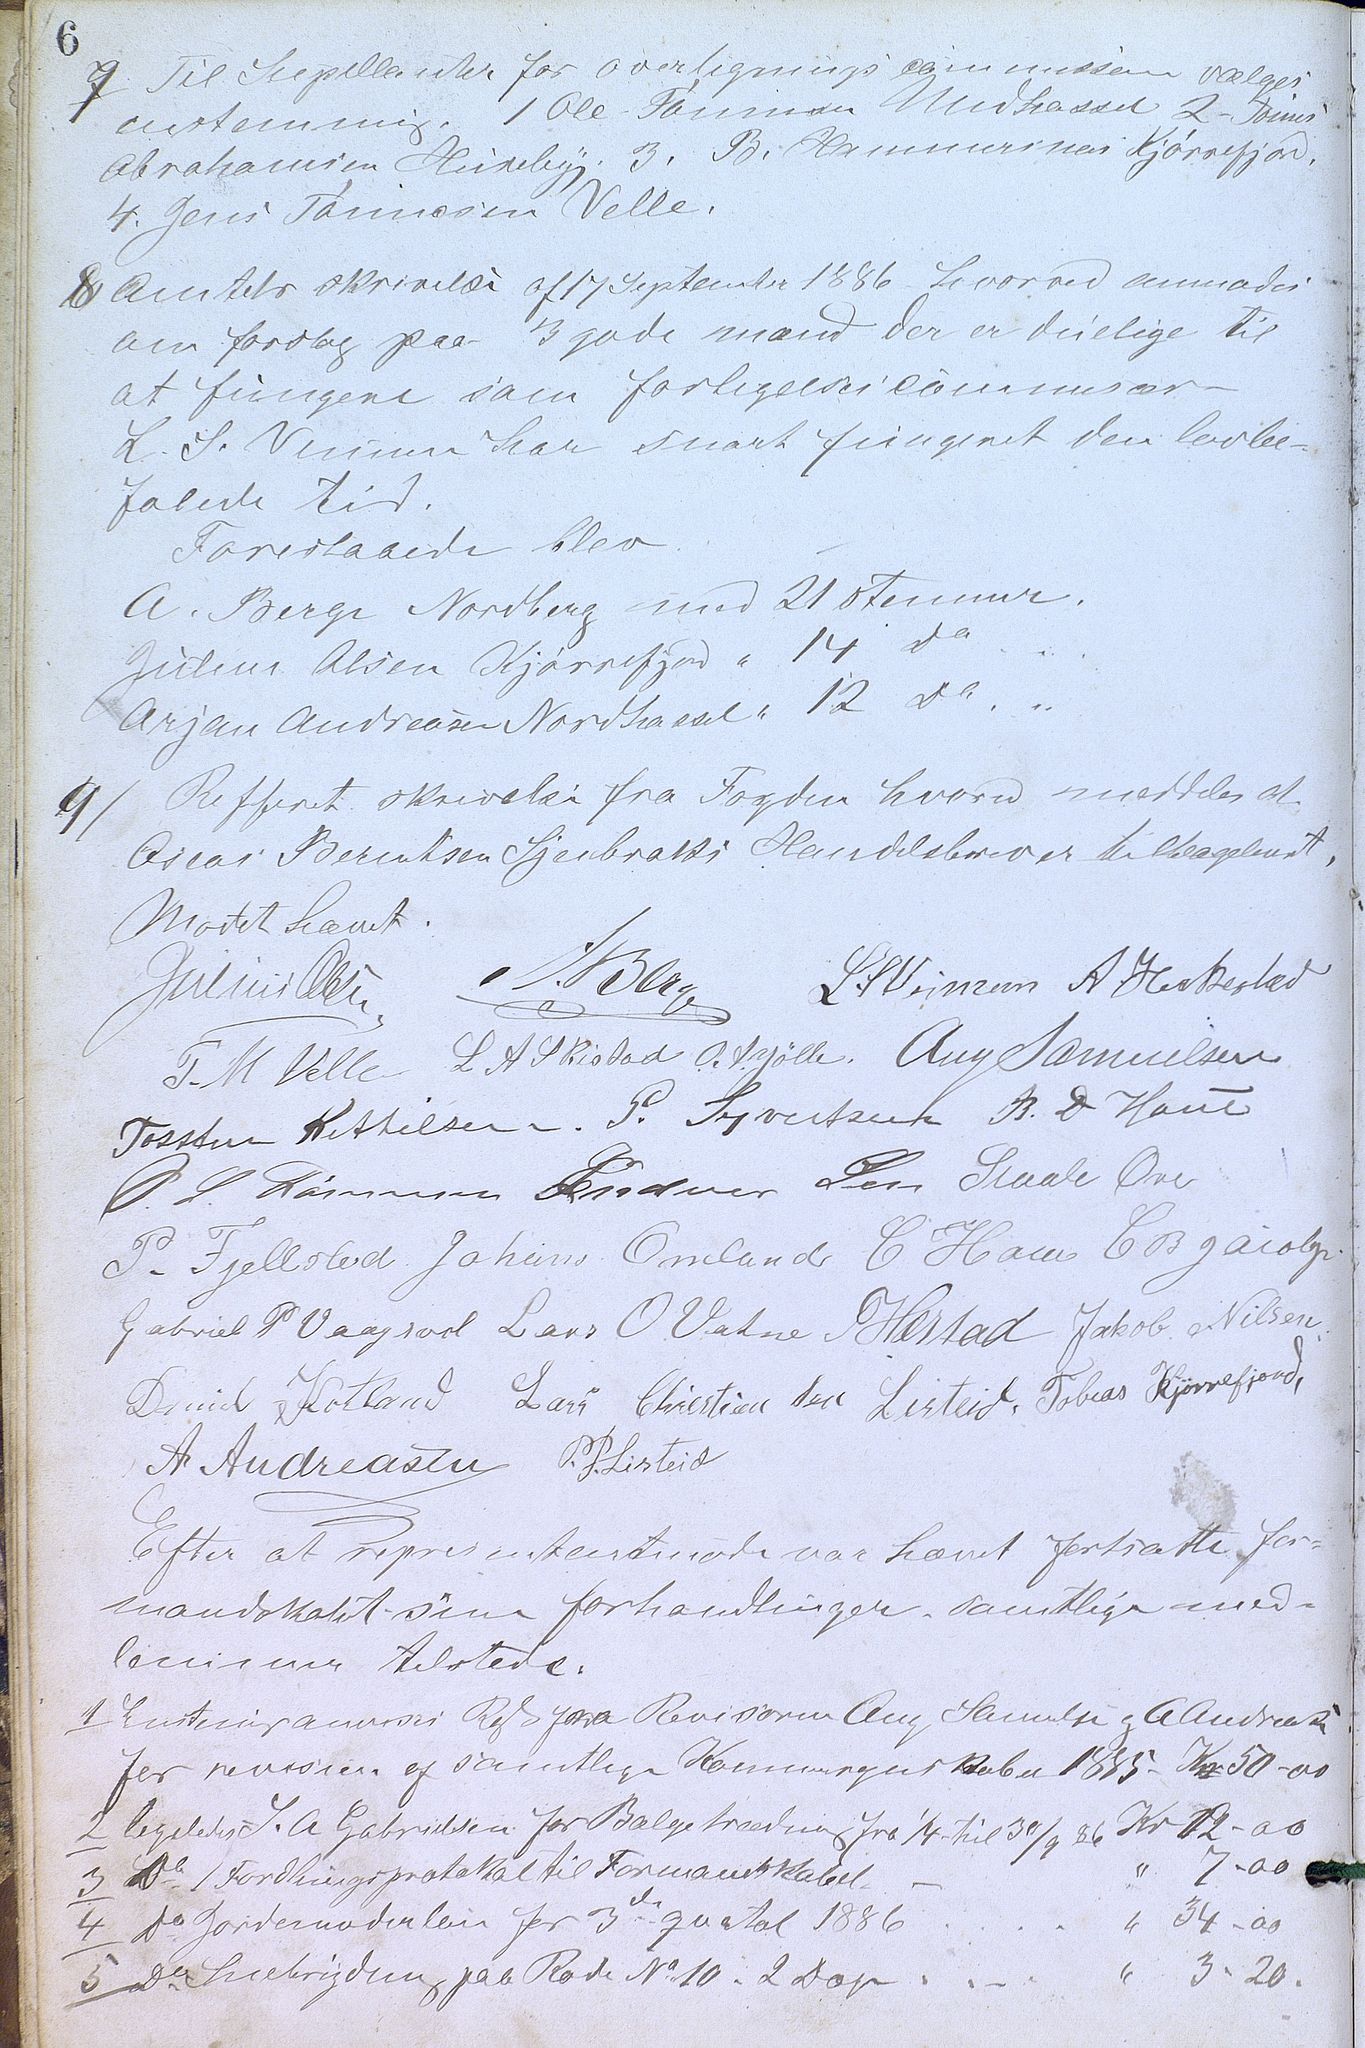 6
7 Til Suppleanter for overligningscommissionen vælges
enstemmig. 1 Ole Tønnesen Midhassel 2 - Tønnes
Abrahamsen Huseby, 3. B. Hammersnes Kjørrefjord.
4. Jens Tønnesen Velle.
8 Amtets skrivelse af 17 September 1886 hvorved anmodes
om forslag paa 3 gode mænd der er duelige til
at fungere som forligelsescommisær -
L. S. Vimme har snart fungeret den lovbe-
falede tid.
Foreslaaede blev
A. Berge Nordberg med 21 stemmer.
Julius Olsen Kjørrefjord " 14 Do
Arjan Andreasen Nordhassel " 12 Do . "
9/ Refferert skrivelse fra Fogden hvorved meddeles at
Oscar Berntsen Handelsbrev er
Mødet hævet.
Julius Olsen A. Berge L S Vimme A
T. M Velle L A Skistad O. A. Aug Samuelsen
Tosten Kettilsen. P. Syvertsen B. D Haue
P. S. Tønnesen Staale Ore
P. Fjellestad Johans Omland C Haue C B
Gabriel P Vaagsvol Lars O. Vatne P Hestad Jakob Nilsen
Kotland Lars Christian sen Listeid, Tobias Kjørrefjord,
A. Andreasen P. P. Listeid
Efter at representantmøde var hævet fortsatte for-
mandskabet sine forhandlinger. samtlige med-
lemmer tilstede.
1 Enstemig anvises Regning fra Revisorerne Aug Samuelse g A Andreasen
for revision af samtlige Kommuneregnskaber 1885 - Kr 50 - 00
2 ligeledes S. A Gabrielsen for Bælgetrædning fra 1/4 til 30/9 86 Kr 12 - 00
3 Do 1 Forhlingsprotokol til Formandskabet - " 7 - 00
4 Do Jordemoderløn for 3de qvartal 1886 . . . . " 34 - 00
5 Do Snebrydning paa Rode No 10 . 2 Dage . . - . " 3 - 20.